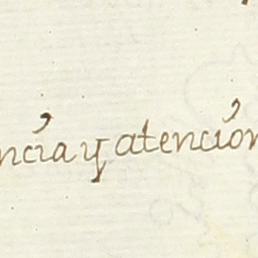 ncia y atención